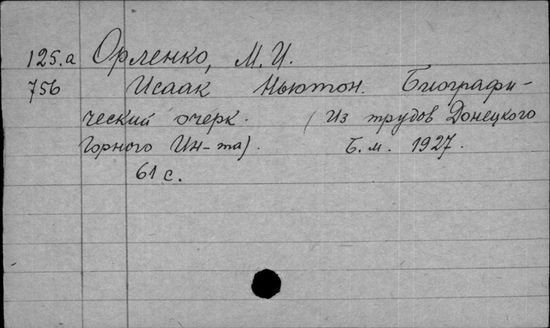 125.а Орленко, М.И.
756 Исаак Ньютон. Биографи-
ческий очерк. (Из трудов Донецкого
Горного Ин-та). Б.м. 1927.
61 с.